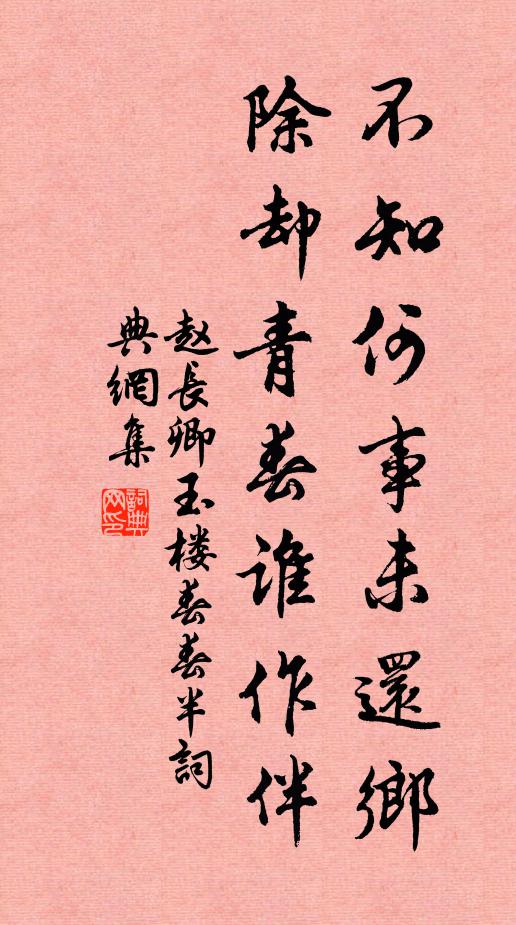 不知何事未還鄉
除却青春誰作伴
赵長卿玉楼春春半詞
典網集
詞典網印